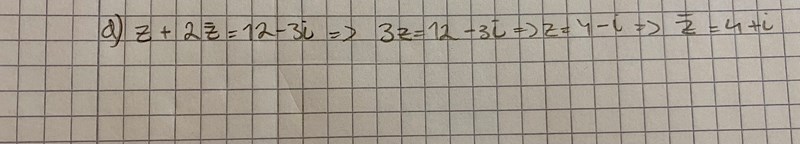 d) z + 2z̄ = 12 - 3i => 3z = 12 - 3i => z = 4 - i => z̄ = 4 + i